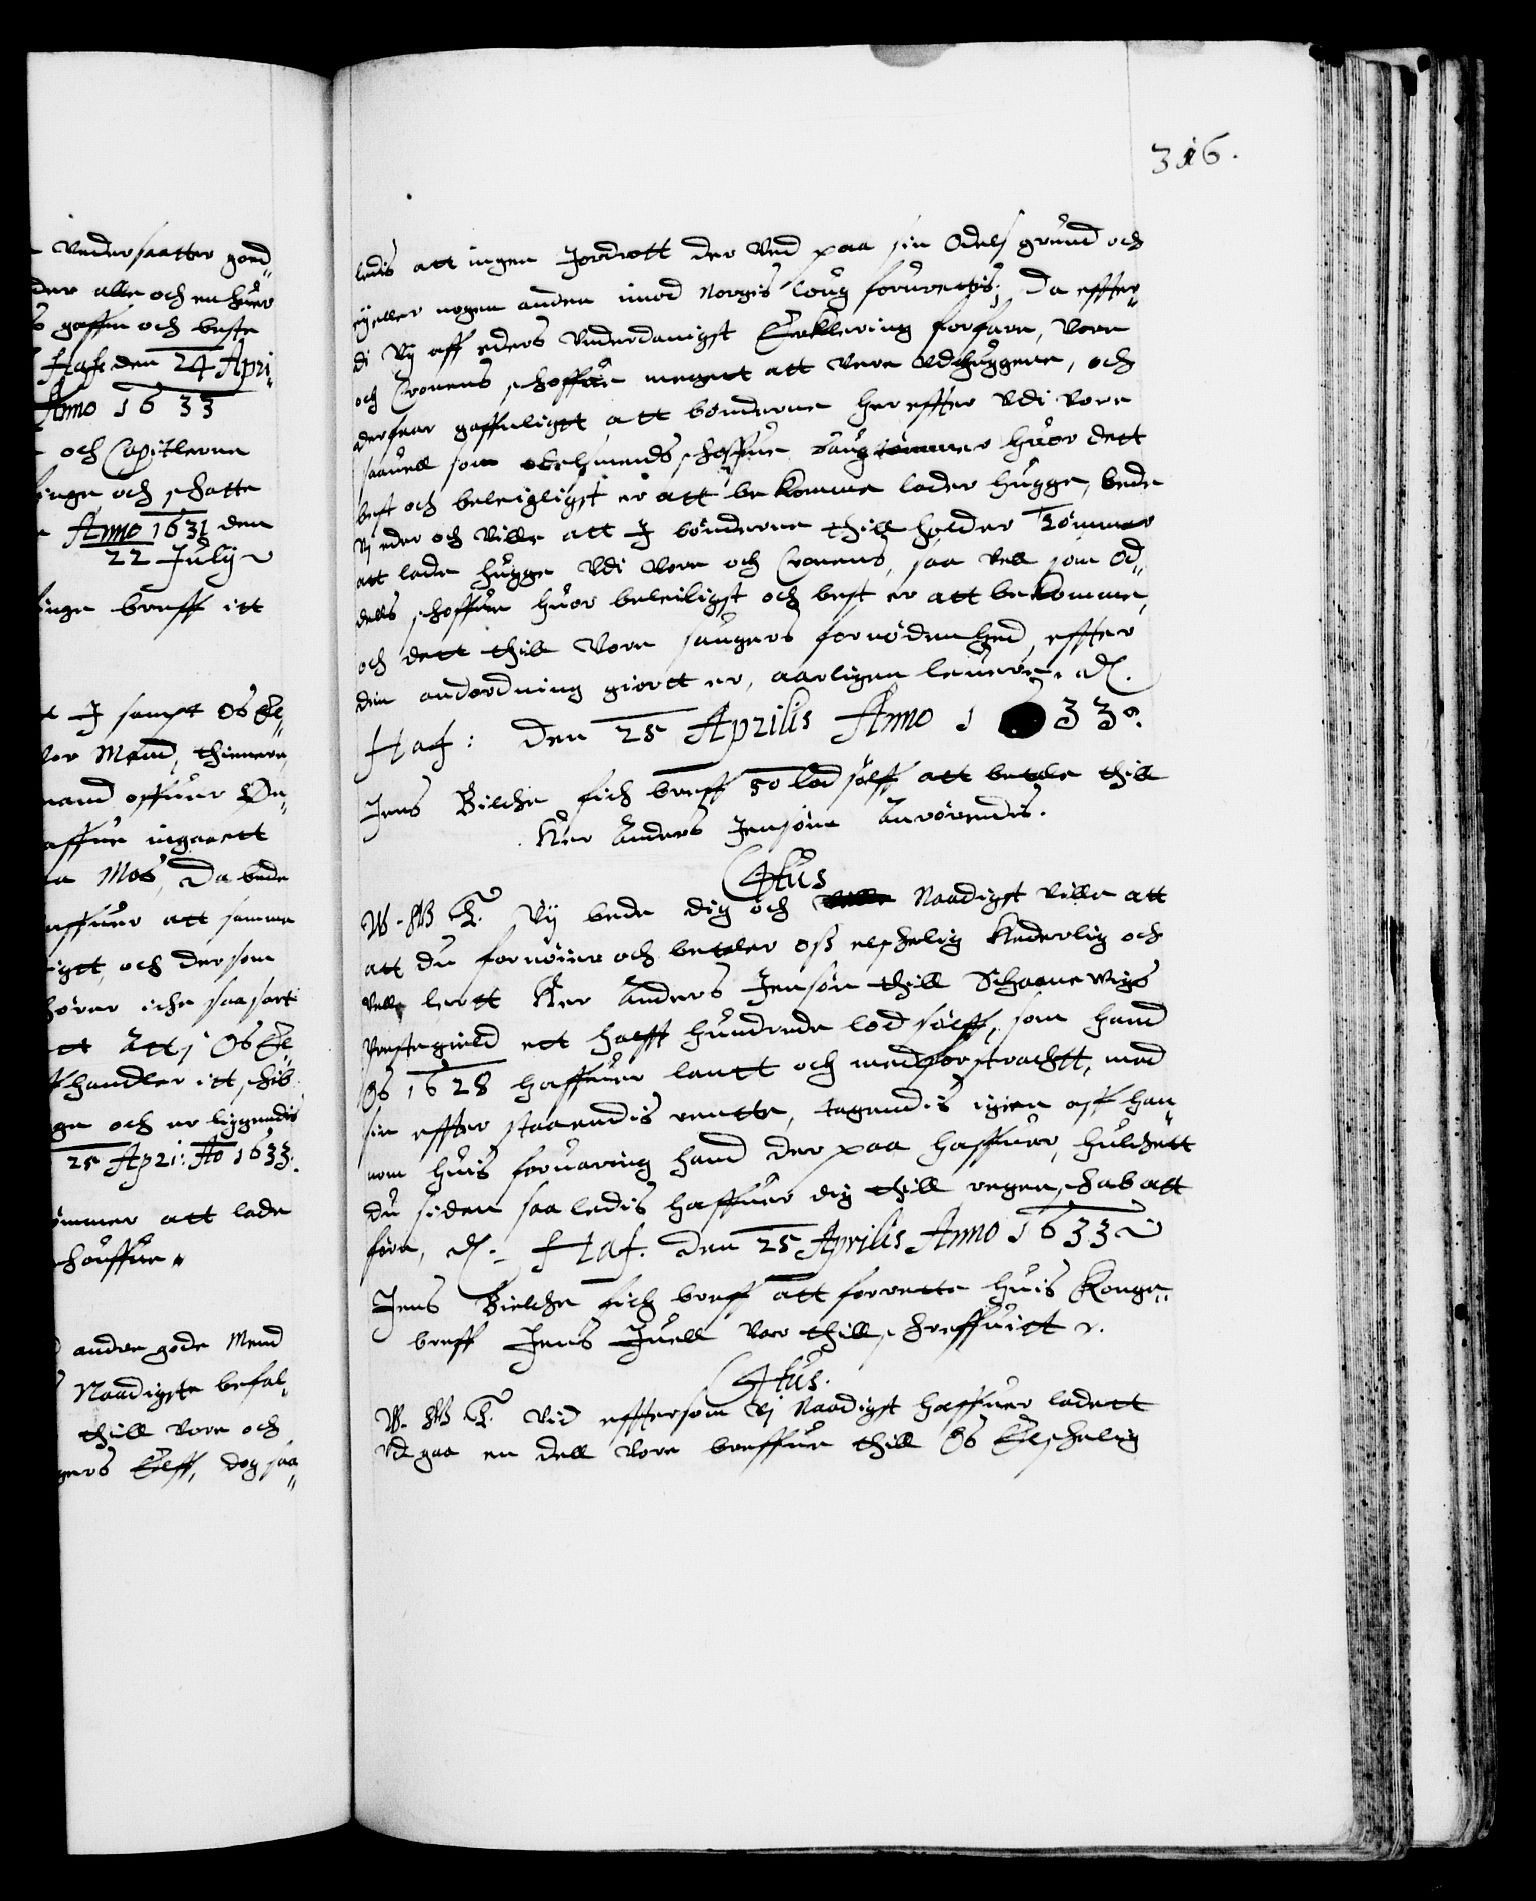 Vndersaatter goed„
der alle och en huer
gaffn och beste
Haf: den 24 Apri„
Anno 1633
och Capitlerne
inge och schatte
Anno 1631 den
22 Julij
inge breff itt
I sampt Os El„
Mend, thienere
mand offuer
affue ingaaett
Mos, Da bede
affuer att samme
igtt, och dersom
hører iche saa sart
ett Att j Os El„
handler itt schib
ge och er liggendis
25 Apri: Ao 1633.
ømmer att lade
houffue
andre gode Mend
Naadigste befal„
thill vore och
gers Elff, dog saa„
316.
ledis att ingen Jordrott der ved paa sin Odels grund och
eij eller nogen anden imod Norgis loug forurettis, Da effter„
di Vij aff eders vnderdanigst Erklering forfare, Vore
och Cronens schoffue megett att vere vdhuggene, och
derfaar gaffnligtt att bønderne hereffter vdi vore
saauell som odelsmends schoffue saugtømmer huor dett
best och beleigligst er att bekomme lader hugge, bede
Vj eder och ville att I bønderne thill holder Tømmer
att lade hugge vdi vore och Cronens, saa vell som Od„
dels schoffue huor beleiligst och best er att bekomme,
och dett thill vore saugers fornødenhed, effter
den andordning giortt er, aarligen leuere.
Haf: den 25 Aprilis Anno 1 33.
Jens Bilche fich breff 50 lod sølff att betale thill
Her Anders Jensøn anrørendis.
C4tus
W. G. T. Vij bede dig och Naadigst ville att
att du fornøier och betaler oss elschelig Hederlig och
vell lertt Her Anders Jensøn thill Schaanewigs
prestegield ett halfft hundrede lod sølff, som hand
Os 1628 haffuer lantt och medforstrachtt, med
sin effter staaendis rentte, tagendis igien aff han„
nom huis foruaring hand der paa haffuer, huilchett
du siden saa ledis haffuer dig thill regenschab att
føre, Haf. den 25 Aprilis Anno 1633
Jens Bielche fich breff att forrette huis Konge„
breff Jens Juell var thill schreffuitt.
C4tus.
W. G. T. Vid efftersom Vj Naadigst haffuer ladett
vdgaa en dell vore breffue thill Os Elschelig